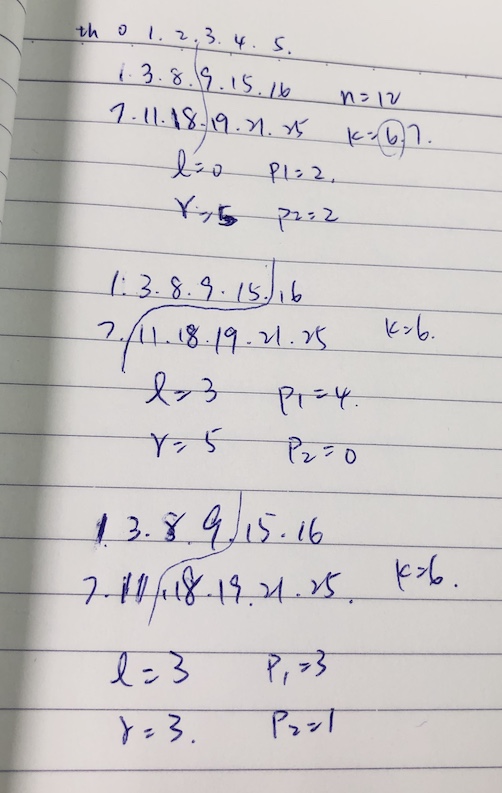 th 0 1. 2. 3. 4. 5.
1. 3. 8. 9. 15. 16 n=12
7. 11. 18. 19. 21. 25 k=6,7.
l=0 p1=2,
r=5 p2=2
1. 3. 8. 9. 15. 16
7. 11. 18. 19. 21. 25 k=6.
l=3 p1=4.
r=5 p2=0
1 3. 8. 9. 15. 16
7. 11. 18. 19. 21. 25. k=6.
l=3 p1=3
r=3. p2=1